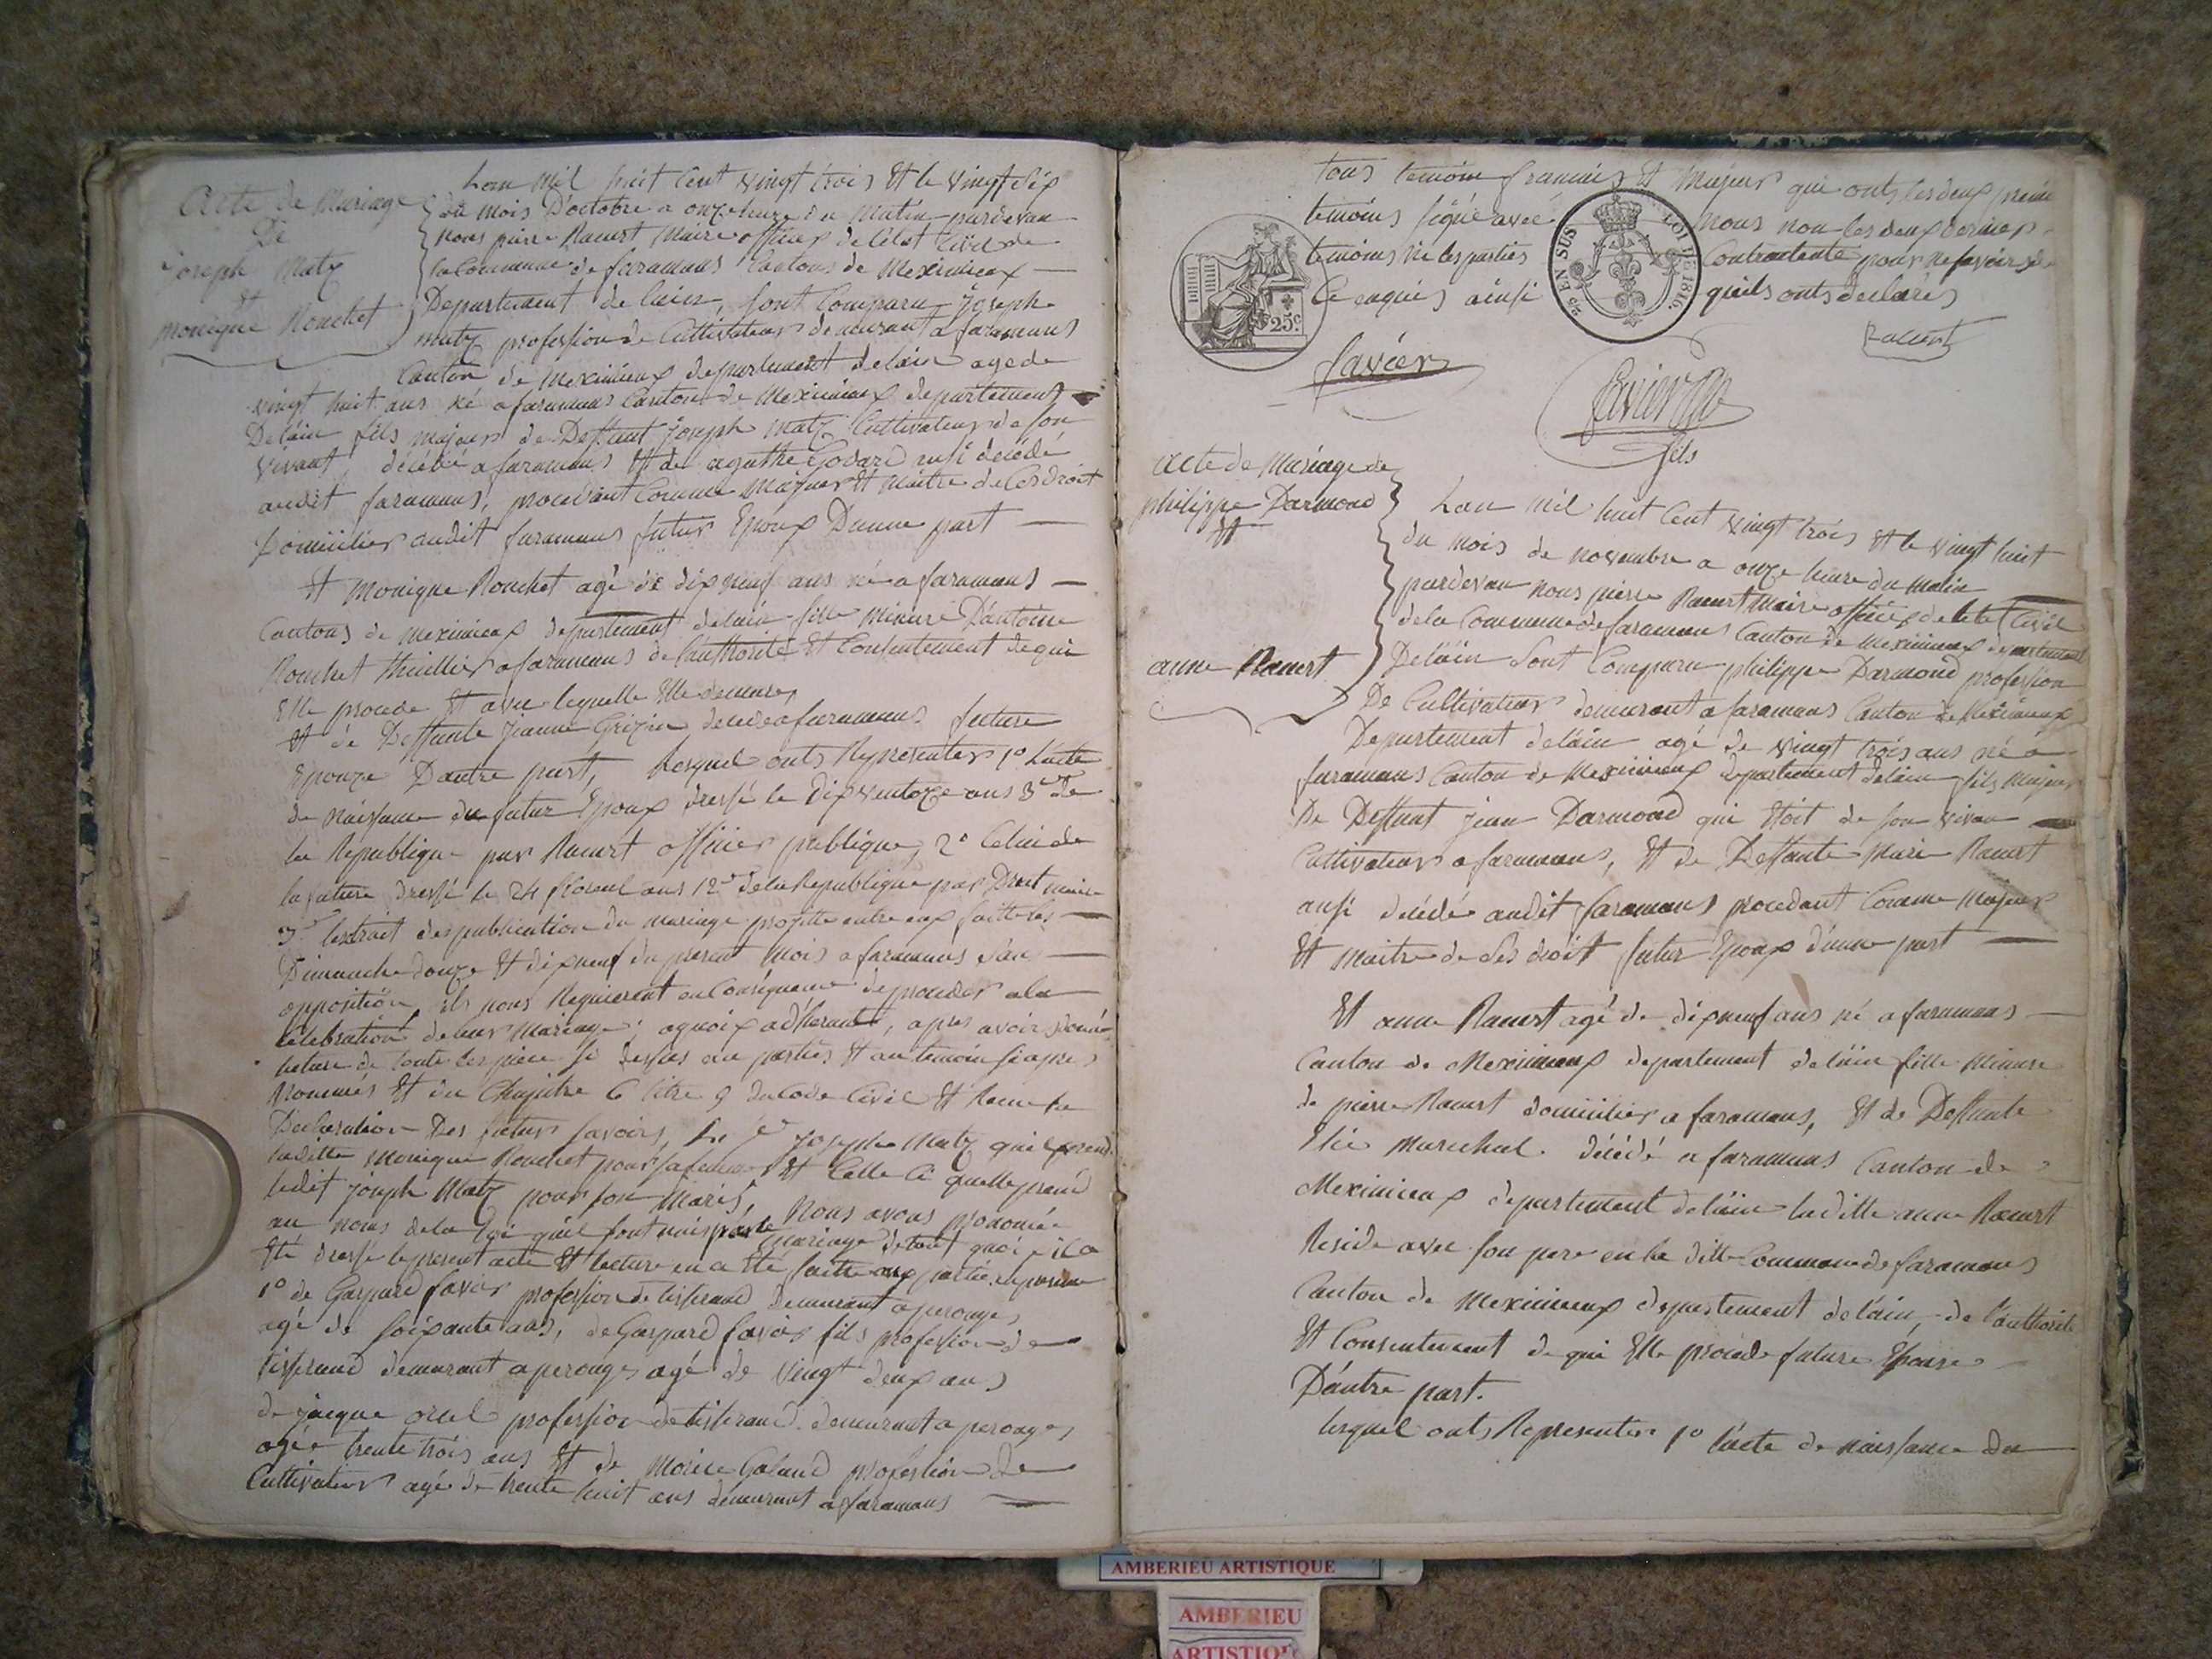 Acte de Mariage
De
joseph Matz
Et
monique Rouchet
Lan mil huit Cent vingt trois Et le vingt Six
du mois D'octobre a onze heure du Matin pardevan
nous pierre Racurt Maire officier de l'état Civil de
la Commune de faramans Cantons de Meximieux
Departement de lain, sont Comparu joseph
matz profession de Cultivateur demeurant a faramans
Canton de Meximieux departement delain age de
vingt huit ans né a faramans Canton de Meximieux departement
Delain fils majeur de Deffunt joseph Matz Cultivateur de son
vivant décédé a faramans Et de agathe Godard ausi décédé
audit faramans, procedant Comme Majeur Et Maitre de Ces Droit
Domicilier audit faramans futur Epoux Dunne part
Et Monique Rouchet agé de dix neuf ans né a faramans
Cantons de meximieux departement delain fille Mineure D'antoine
Rouchet a faramans de l'authorité Et Consentement de qui
Elle procede Et avec lequelle Elle demeure,
Et de Deffunte Jeanne décédé a faramans future
Epouze Dautre part, lesquel onts Representer 1° Lacte
de Naissance du futur Epoux dressé le Dix ventoze ans 3e De
la République par Racurt officier publique, 2° Celui de
la future dressé le 24 floreal ans 12e dela Republique par Maire
3° lextrait des publication du mariage projetté entre eux faitte les
Dimanche douze Et dix neuf du present Mois a faramans san
opposition, ils nous Requierent en Conséquence de proceder a la
celebration de leur Mariage; aquoi adhérant, apres avoir donné
lecture de toute les piece Si dessus au parties Et au temoin si apres
Nommés Et du Chapitre 6 titre 9 du Code Civil Et Recu la
Declaration Des futur savoir, Le Joseph Matz quil prend
laditte Monique Rouchet pour sa femme Et Celle Ci quelle prend
ledit joseph Matz pour son Maris, Nous avons prononcé
au noms dela loi quil sont unis par le Mariage de tout quoi il a
Eté dressé le present acte Et lecture en a été faitte aux partie en presence
1° de Gaspard favier profession de tisserand Demeurant a perouges
agé de soixante ans, de Gaspard favier fils profession de
tisserand demeurant a perouges agé de vingt deux ans
de jacque profession de tisserand demeurant a perouges
agé trente trois ans Et de Morice Galand profession de
Cultivateur agé de trente huit ans demeurant a faramans
tous temoin francais Et Majeur qui onts les deux premier
temoins signé avec nous non les deux dernier
temoins ni les parties Contractante pour ne savoir de
Ce enquis ainsi quils onts declares
25 EN SUS
LOI DE 1816
25c
Racurt
favier
favier
fils
Acte de Mariage de
philippe Darmond
Et
anne Racurt
Lan mil huit Cent vingt trois Et le vingt huit
du mois de novembre a onze heure du matin
pardevan nous pierre Racurt Maire officier de letat Civil
dela Commune de faramans Canton de Meximieux departement
Delain Sont Comparu philippe Darmond profession
De Cultivateur demeurant a faramans Canton de Meximieux
Departement delain agé de vingt trois ans né a
faramans Canton de Meximieux departement delain fils Majeur
De Deffunt Jean Darmond qui Etoit de son vivan
Cultivateur a faramans, Et de Deffunte Marie Racurt
ausi décédé audit faramans procedant Comme Majeur
Et Maitre de Ses droit futur Epoux d'unne part
Et anne Racurt agé de dix neuf ans né a faramans
Canton de Meximieux departement delain fille Mineure
de pierre Racurt domicilier a faramans, Et de Deffunte
Marechal décédé a faramans Canton de
Meximieux departement delain laditte anne Racurt
Reside avec son pere en la ditte Commune de faramans
Canton de Meximieux departement delain, de l'authorité
Et Consentement de qui Elle procede future Epouse
D'autre part.
lesquel onts Representer 1° l'acte de naissance du
AMBERIEU ARTISTIQUE
AMBERIEU
ARTISTIQUE